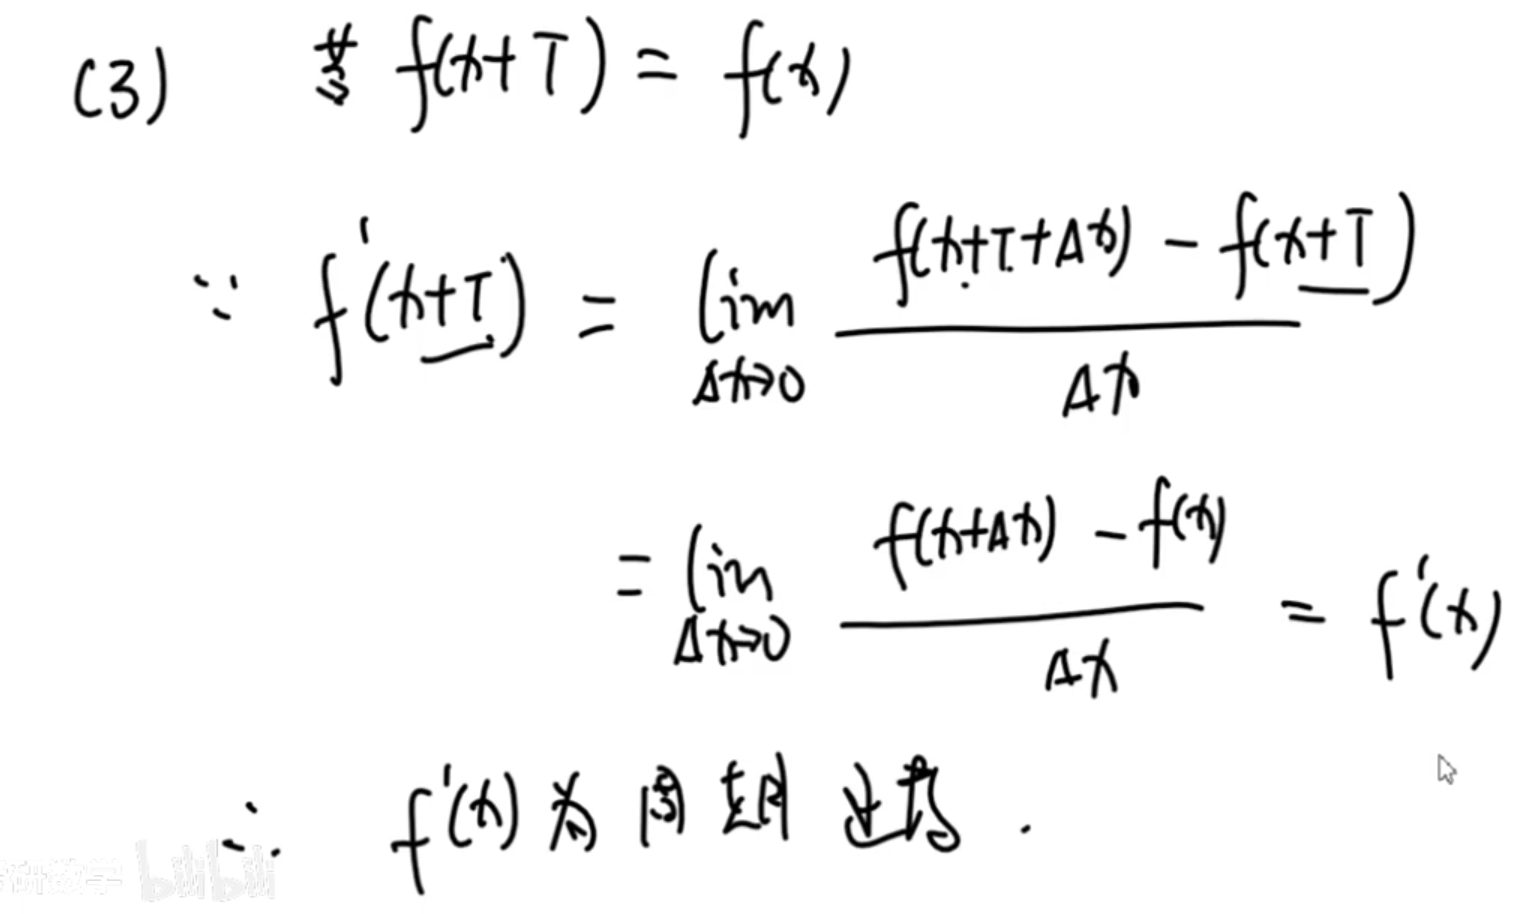 (3) 若 f(x+T) = f(x)
∵ f'(x+T) = lim Δx→0 (f(x+T+Δx) - f(x+T)) / Δx
= lim Δx→0 (f(x+Δx) - f(x)) / Δx = f'(x)
∴ f'(x) 为周期函数.
研数学 bilibili